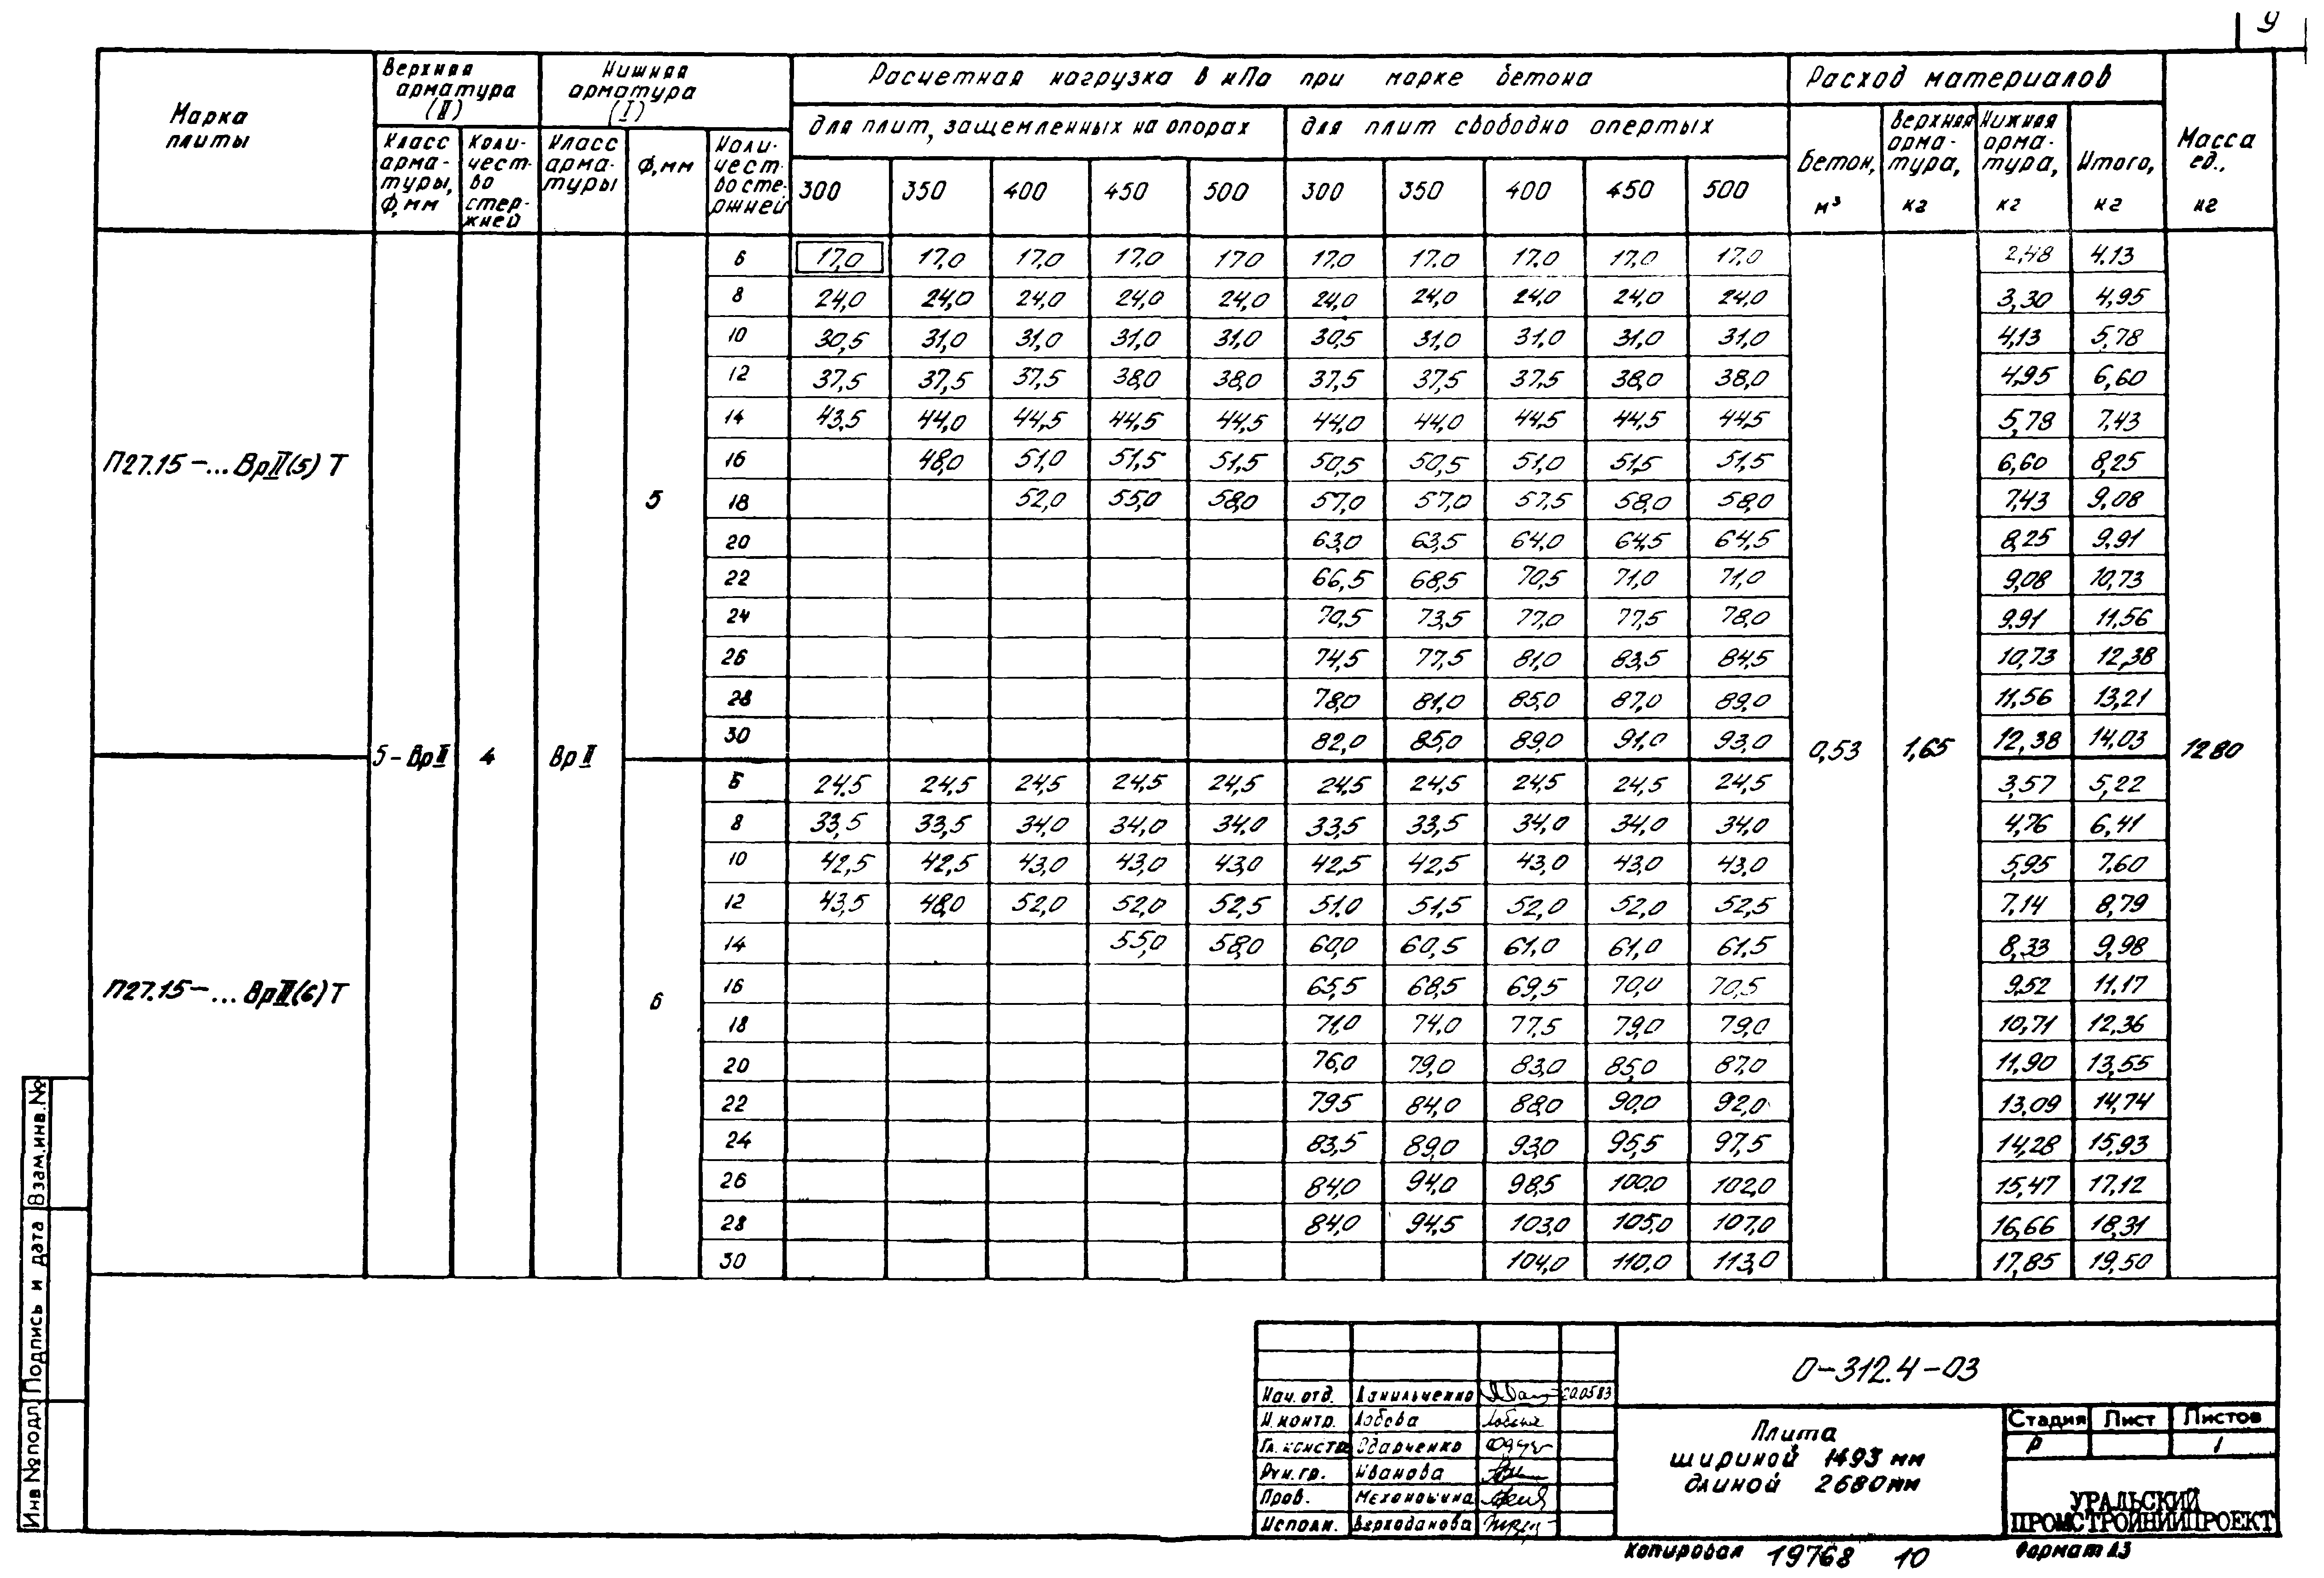 9
Марка плиты
Верхняя арматура (II)
Нижняя арматура (I)
Расчетная нагрузка в кПа при марке бетона
Расход материалов
Масса ед., кг
для плит, защемленных на опорах
для плит свободно опертых
Класс арма-туры, Ф,мм
Коли-чест-во стер-жней
Класс арма-туры
Ф,мм
Коли-чест-во сте-ржней
300 350 400 450 500 300 350 400 450 500
Бетон, м³
Верхняя арма-тура, кг
Нижняя арма-тура, кг
Итого, кг
П27.15-...ВрII(5)Т
5-ВрII 4 ВрII
5
0,53 1,65 1280
6 17,0 17,0 17,0 17,0 170 17,0 17,0 17,0 17,0 17,0 2,48 4,13
8 24,0 24,0 24,0 24,0 24,0 24,0 24,0 24,0 24,0 24,0 3,30 4,95
10 30,5 31,0 31,0 31,0 31,0 30,5 31,0 31,0 31,0 31,0 4,13 5,78
12 37,5 37,5 37,5 38,0 38,0 37,5 37,5 37,5 38,0 38,0 4,95 6,60
14 43,5 44,0 44,5 44,5 44,5 44,0 44,0 44,5 44,5 44,5 5,78 7,43
16 48,0 51,0 51,5 51,5 50,5 50,5 51,0 51,5 51,5 6,60 8,25
18 52,0 55,0 58,0 57,0 57,0 57,5 58,0 58,0 7,43 9,08
20 63,0 63,5 64,0 64,5 64,5 8,25 9,91
22 66,5 68,5 70,5 71,0 71,0 9,08 10,73
24 70,5 73,5 77,0 77,5 78,0 9,91 11,56
26 74,5 77,5 81,0 83,5 84,5 10,73 12,38
28 78,0 81,0 85,0 87,0 89,0 11,56 13,21
30 82,0 85,0 89,0 91,0 93,0 12,38 14,03
П27.15-...ВрII(6)Т
6
6 24,5 24,5 24,5 24,5 24,5 24,5 24,5 24,5 24,5 24,5 3,57 5,22
8 33,5 33,5 34,0 34,0 34,0 33,5 33,5 34,0 34,0 34,0 4,76 6,41
10 42,5 42,5 43,0 43,0 43,0 42,5 42,5 43,0 43,0 43,0 5,95 7,60
12 43,5 48,0 52,0 52,0 52,5 51,0 51,5 52,0 52,0 52,5 7,14 8,79
14 55,0 58,0 60,0 60,5 61,0 61,0 61,5 8,33 9,98
16 65,5 68,5 69,5 70,0 70,5 9,52 11,17
18 71,0 74,0 77,5 79,0 79,0 10,71 12,36
20 76,0 79,0 83,0 85,0 87,0 11,90 13,55
22 795 84,0 88,0 90,0 92,0 13,09 14,74
24 83,5 89,0 93,0 95,5 97,5 14,28 15,93
26 84,0 94,0 98,5 100,0 102,0 15,47 17,12
28 84,0 94,5 103,0 105,0 107,0 16,66 18,31
30 104,0 110,0 113,0 17,85 19,50
Взам.инв.№
Подпись и дата
Инв №подл
Нач. отд. Данильченко 20.05 83
Н.контр. Лобова
Гл. констр Одарченко
Рук.гр. Иванова
Пров. Механошина
Исполн. Верходанова
0-312.4-03
Плита
шириной 1493 мм
длиной 2680мм
Стадия Лист Листов
Р 1
УРАЛЬСКИЙ
ПРОМСТРОЙНИИПРОЕКТ
Копировал 19768 10 Формат А3